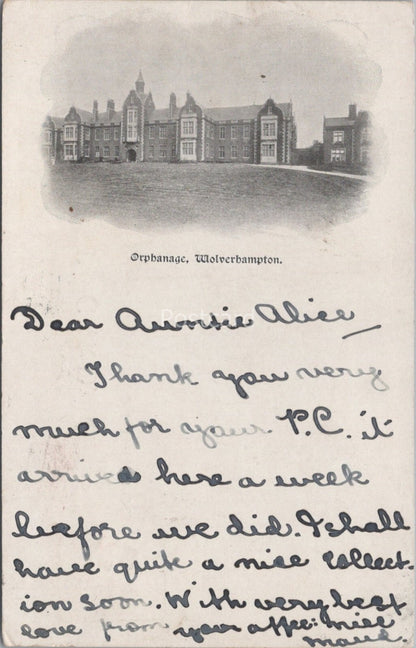 Orphanage, Wolverhampton.
Dear Auntie Alice
Thank you very
much for your P.C. it
arrived here a week
before we did. I shall
have quite a nice collect-
ion soon. With very best
love from your affec: niece
Maud.